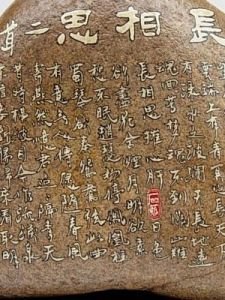 長相思二首
雲端上有青冥之長天下
有淥水之波瀾天長地遠
魂飛苦夢魂不到關山難
長相思摧心肝日色
欲盡花含煙月明欲素
愁不眠趙瑟初停鳳凰柱
蜀琴欲奏鴛鴦絃此曲
有意無人傳願隨春風
寄燕然憶君迢迢隔青天
昔時橫波目今作流淚泉
不信妾腸斷歸來看取明